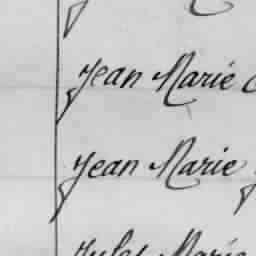 Jean Marie
Jean Marie
Jules Marie